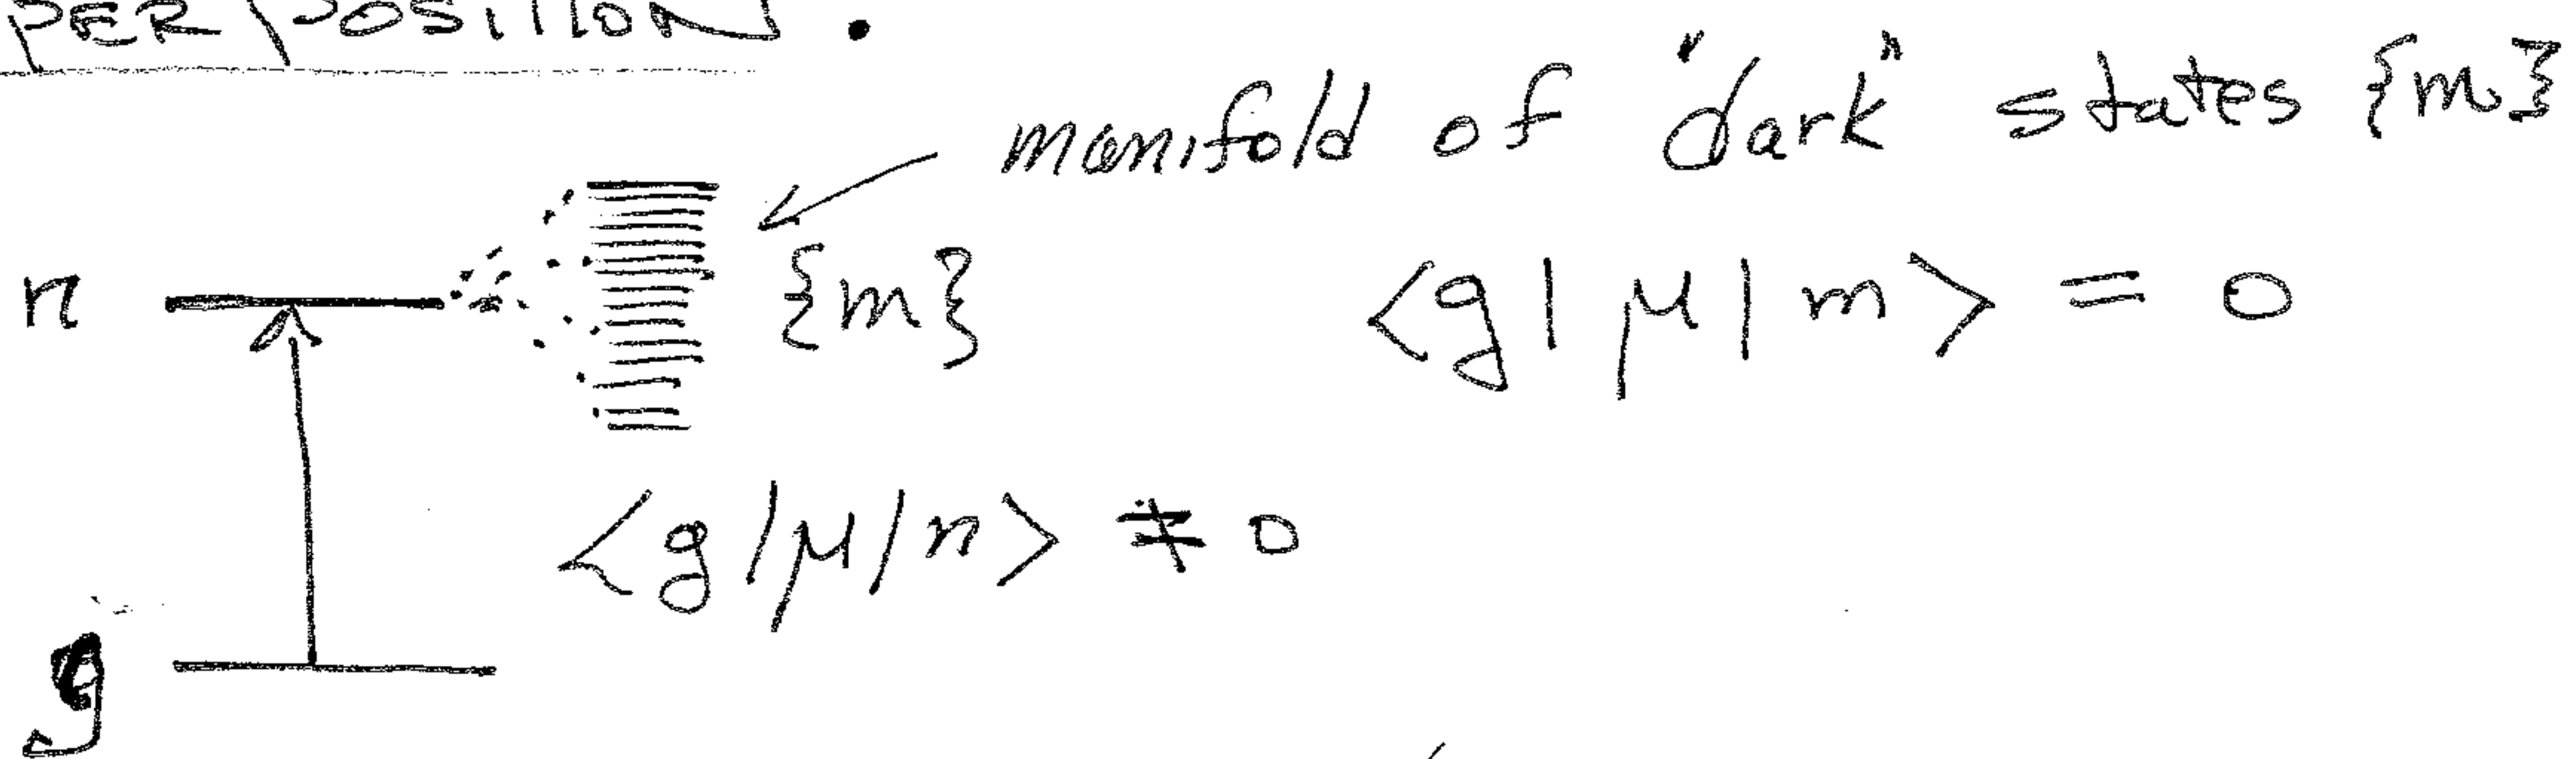 PERPOSITION.
manifold of "dark" states {m}
n {m} <g|μ|m> = 0
<g|μ|n> ≠ 0
g